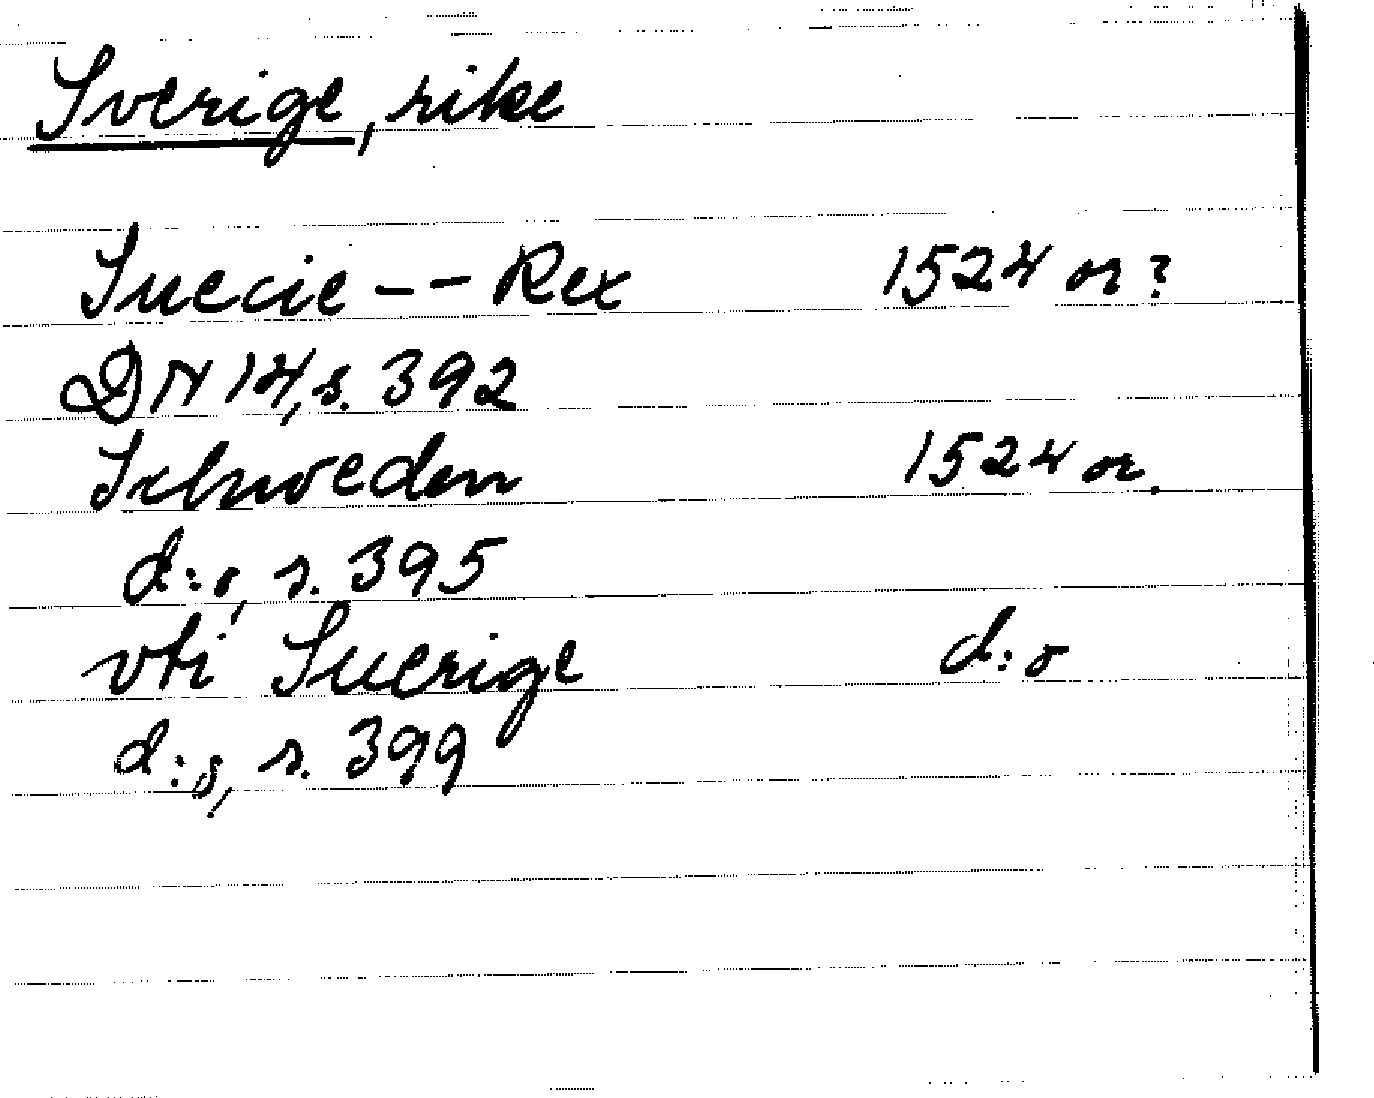 Sverige, rike
Suecie -- Rex 1524 or?
DN 14, s. 392
Schweden 1524 or.
d:o, s. 395
vti Suerige d:o
d:o, s. 399